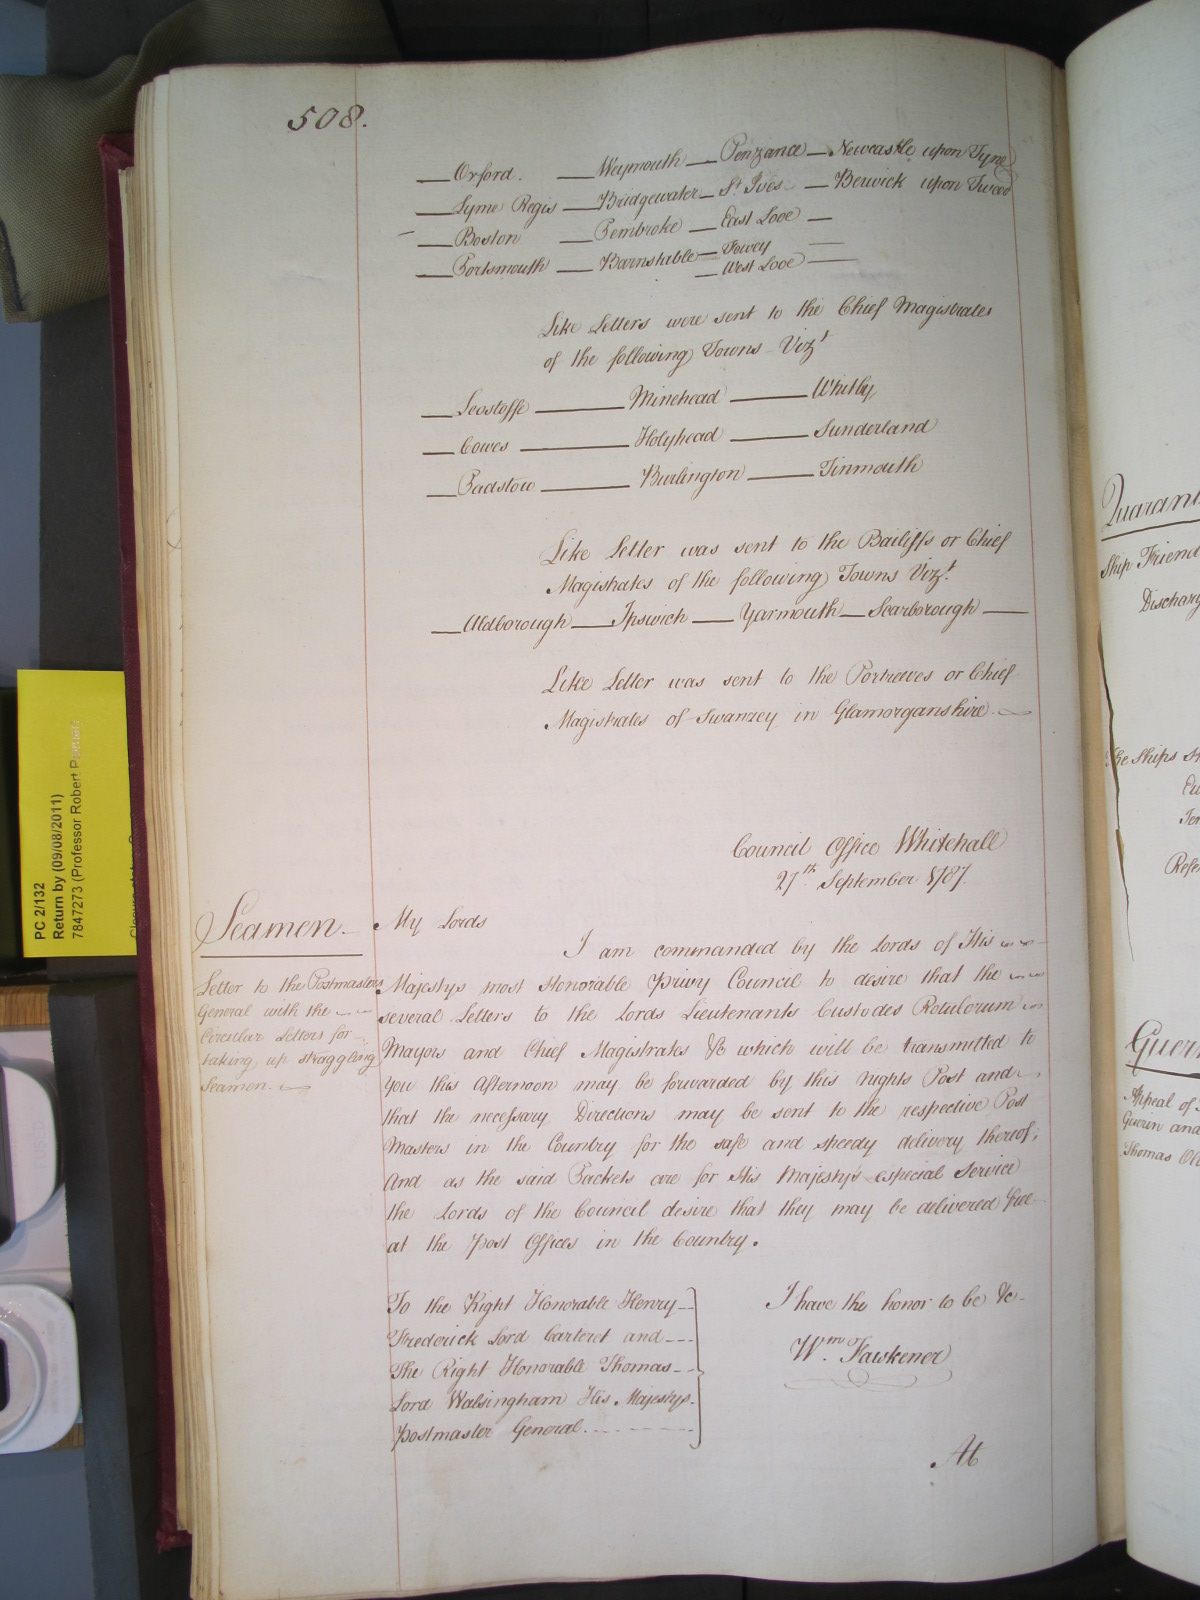 508.
— Orford. — Weymouth — Penzance — Newcastle upon Tyne
— Lyme Regis — Bridgewater — St. Ives — Berwick upon Tweed
— Boston — Pembroke — East Looe —
— Portsmouth — Barnstable — Fowey —
— West Looe —
Like Letters were sent to the Chief Magistrates
of the following Towns Vizt
— Leostoffe — Minehead — Whitby
— Cowes — Holyhead — Sunderland
— Padstow — Burlington — Tinmouth
Like Letter was sent to the Bailiffs or Chief
Magistrates of the following Towns Vizt.
— Aldborough — Ipswich — Yarmouth — Scarborough —
Like Letter was sent to the Portreeves or Chief
Magistrates of Swanzey in Glamorganshire.
Council Office Whitehall
27th September 1787.
Seamen.
Letter to the Postmasters
General with the
Circular Letters for
taking up straggling
Seamen.
My Lords
I am commanded by the Lords of His
Majestys most Honorable Privy Council to desire that the
several Letters to the Lords Lieutenants Custodes Rotulorum
Mayors and Chief Magistrates &c which will be transmitted to
You this Afternoon may be forwarded by this nights Post and
that the necessary Directions may be sent to the respective Post
Masters in the Country for the safe and speedy delivery thereof;
And as the said Packets are for His Majesty's especial Service
the Lords of the Council desire that they may be delivered free
at the Post Offices in the Country.
To the Right Honorable Henry
Frederick Lord Carteret and
The Right Honorable Thomas
Lord Walsingham His Majestys
Postmaster General
I have the honor to be &c
Wm. Fawkener
At
PC 2/132
Return by (09/08/2011)
7847273 (Professor Robert
Ship Friend
Discharg
The Ships
Refer
Guern
Appeal of
Guerin and
Thomas